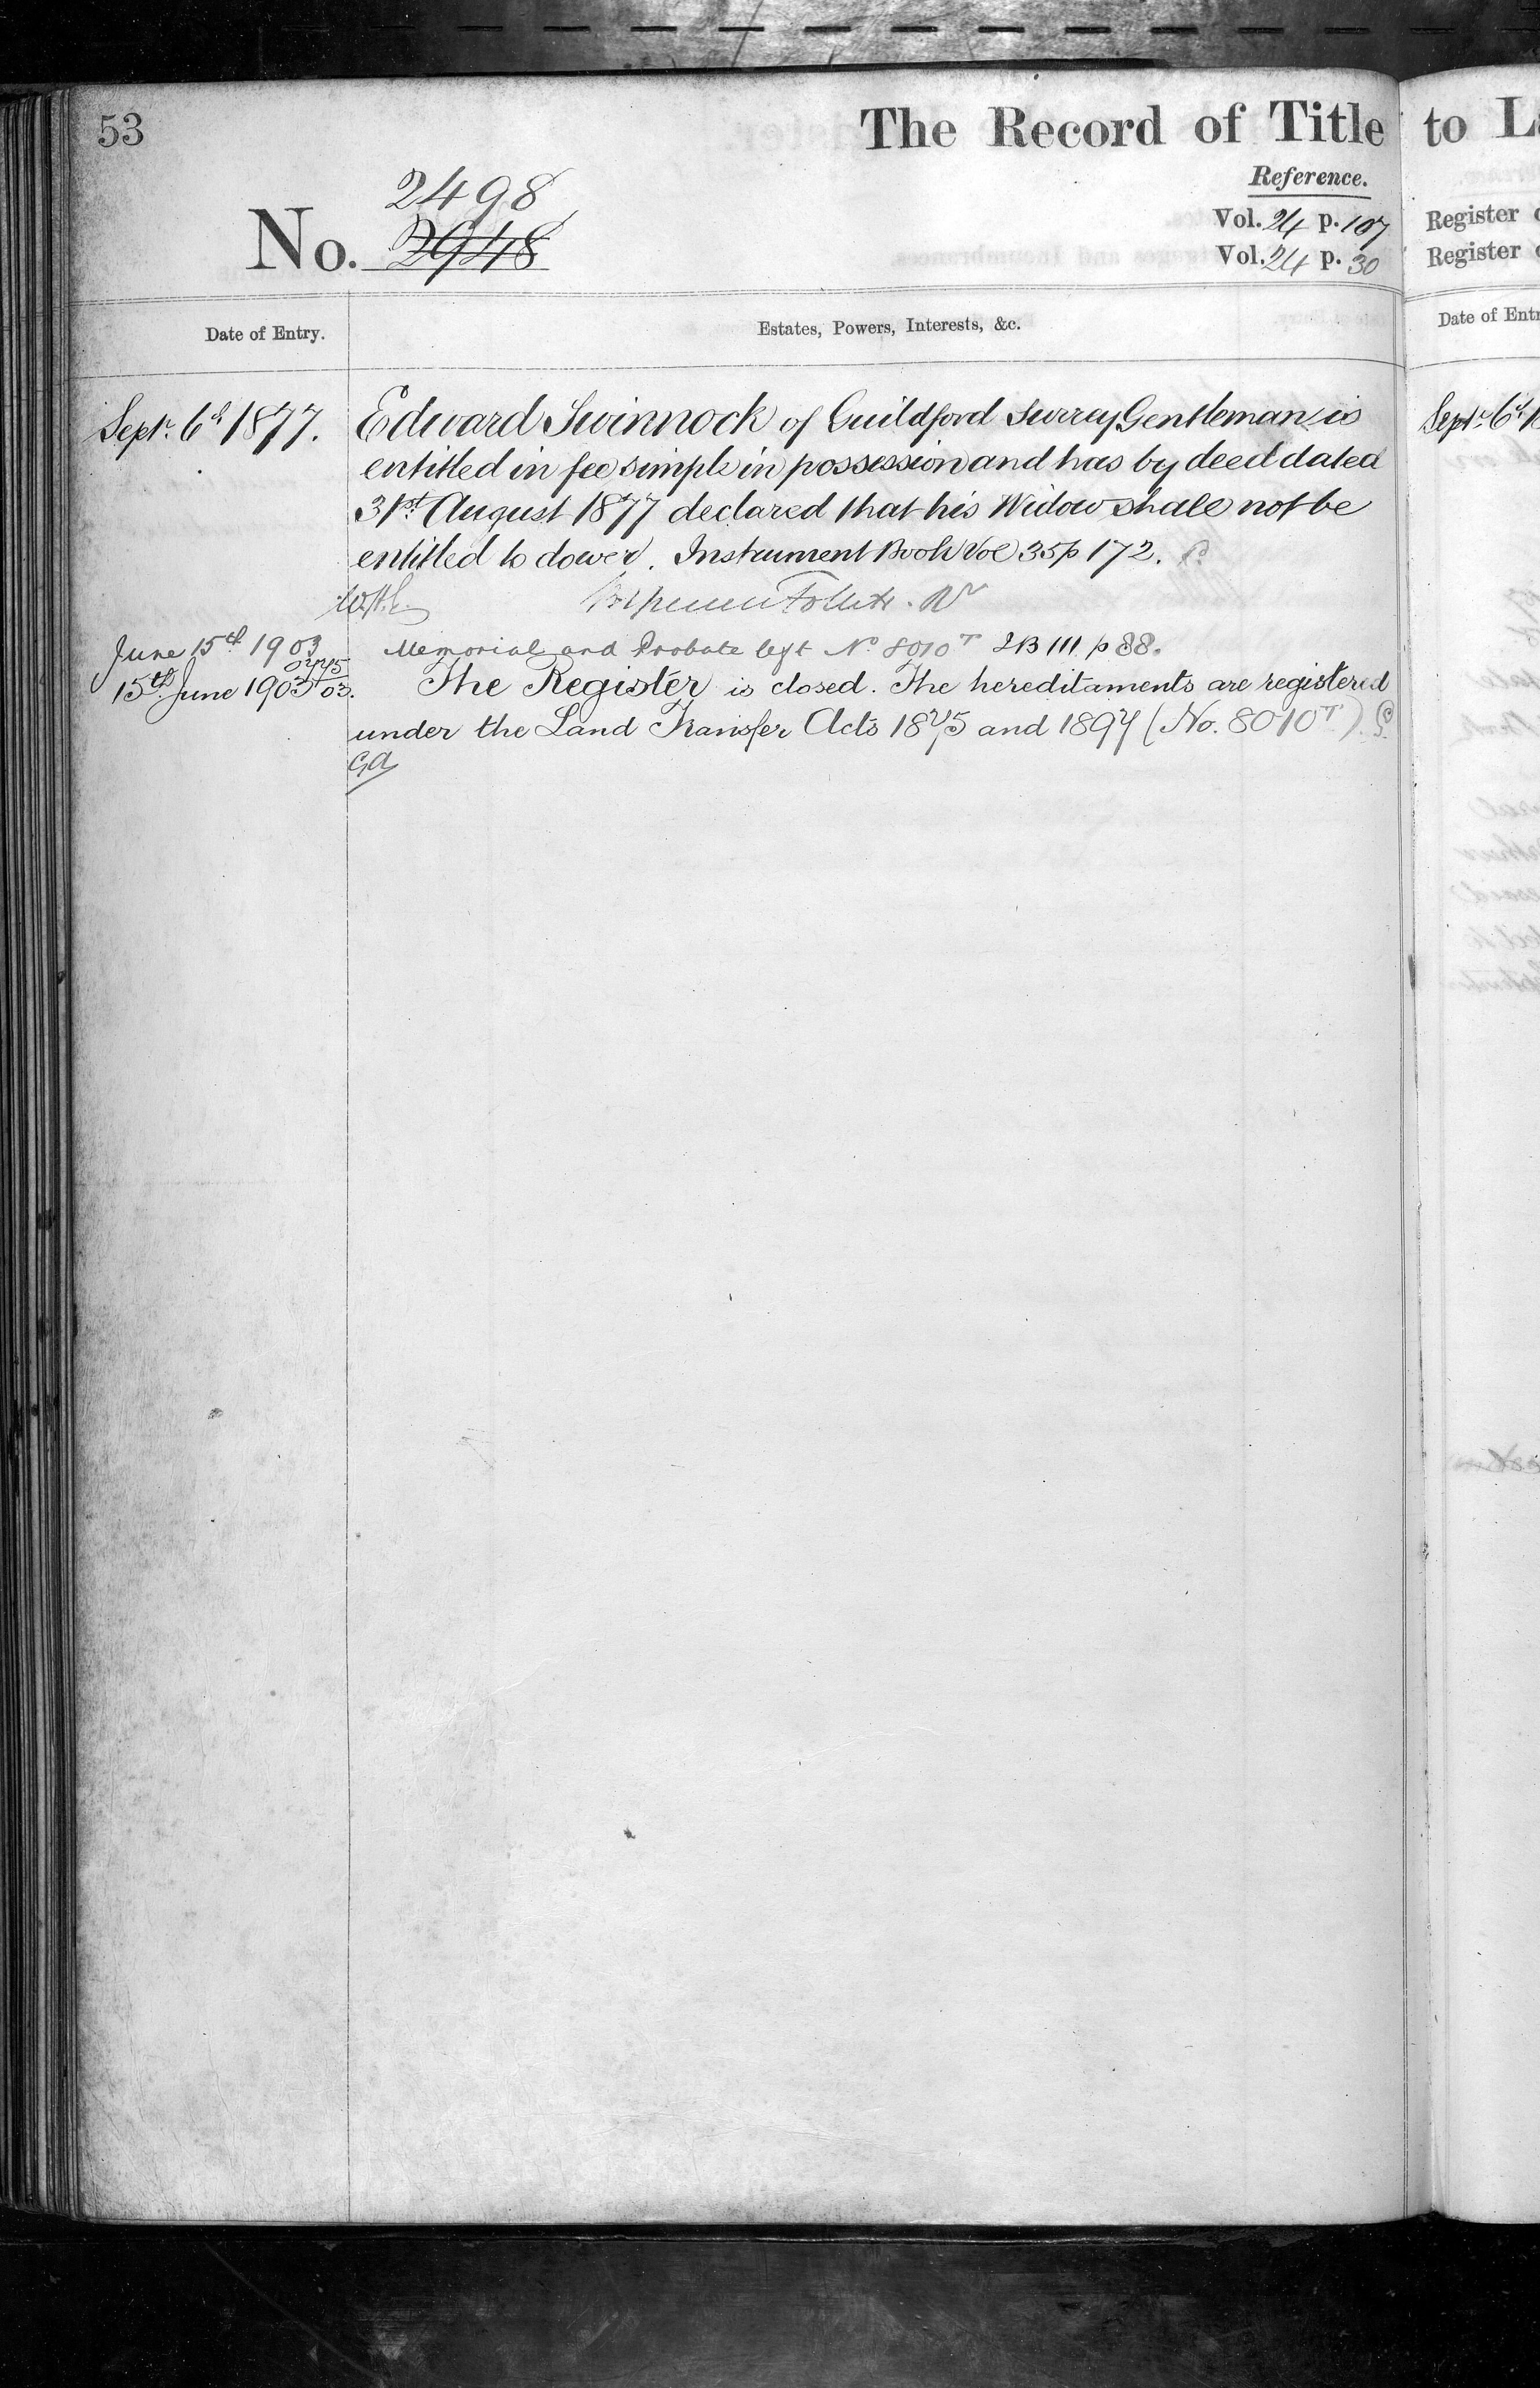 53
The Record of Title to
Reference.
2498
No. 2948
Vol. 24 p. 107 Register
Vol. 24 p. 30 Register
Date of Entry.
Estates, Powers, Interests, &c.
Date of
Septr. 6th 1877.
Edward Swinnock of Guildford Surrey Gentleman is
entitled in fee simple in possession and has by deed dated
31st. August 1877 declared that his Widow shall not be
entitled to dower. Instrument Book Vol 35 p 172.
Sept. 6th
June 15th 1903
Memorial and Probate left No 8010T IB 111 p 88.
15th June 1903
The Register is closed. The hereditaments are registered
under the Land Transfer Acts 1875 and 1897 (No. 8010T).